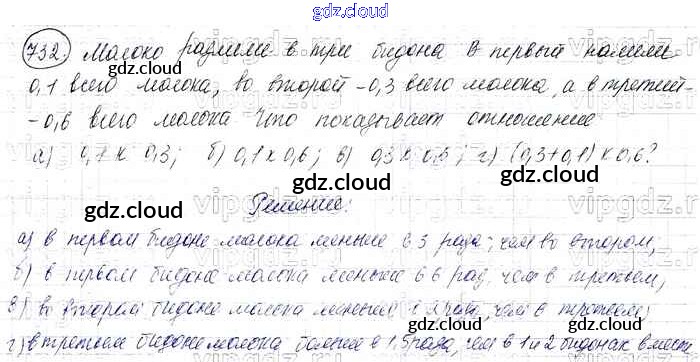 gdz.cloud
732. Молоко разлили в три бидона В первый налили
0,1 всего молока, во второй - 0,3 всего молока, а в третий-
-0,6 всего молока Что показывает отношение
а) 0,1 к 0,3; б) 0,1 к 0,6; в) 0,3 к 0,6; г) (0,3+0,1) к 0,6?
Решение:
а) в первом бидоне молока меньше в 3 раза, чем во втором,
б) в первом бидоне молока меньше в 6 раз, чем в третьем,
в) во втором бидоне молока меньше в 2 раза, чем в третьем,
г) в третьем бидоне молока больше в 1,5 раза, чем в 1 и 2 бидонах вместе
gdz.cloud
gdz.cloud
gdz.cloud
gdz.cloud
gdz.cloud
gdz.cloud
gdz.cloud